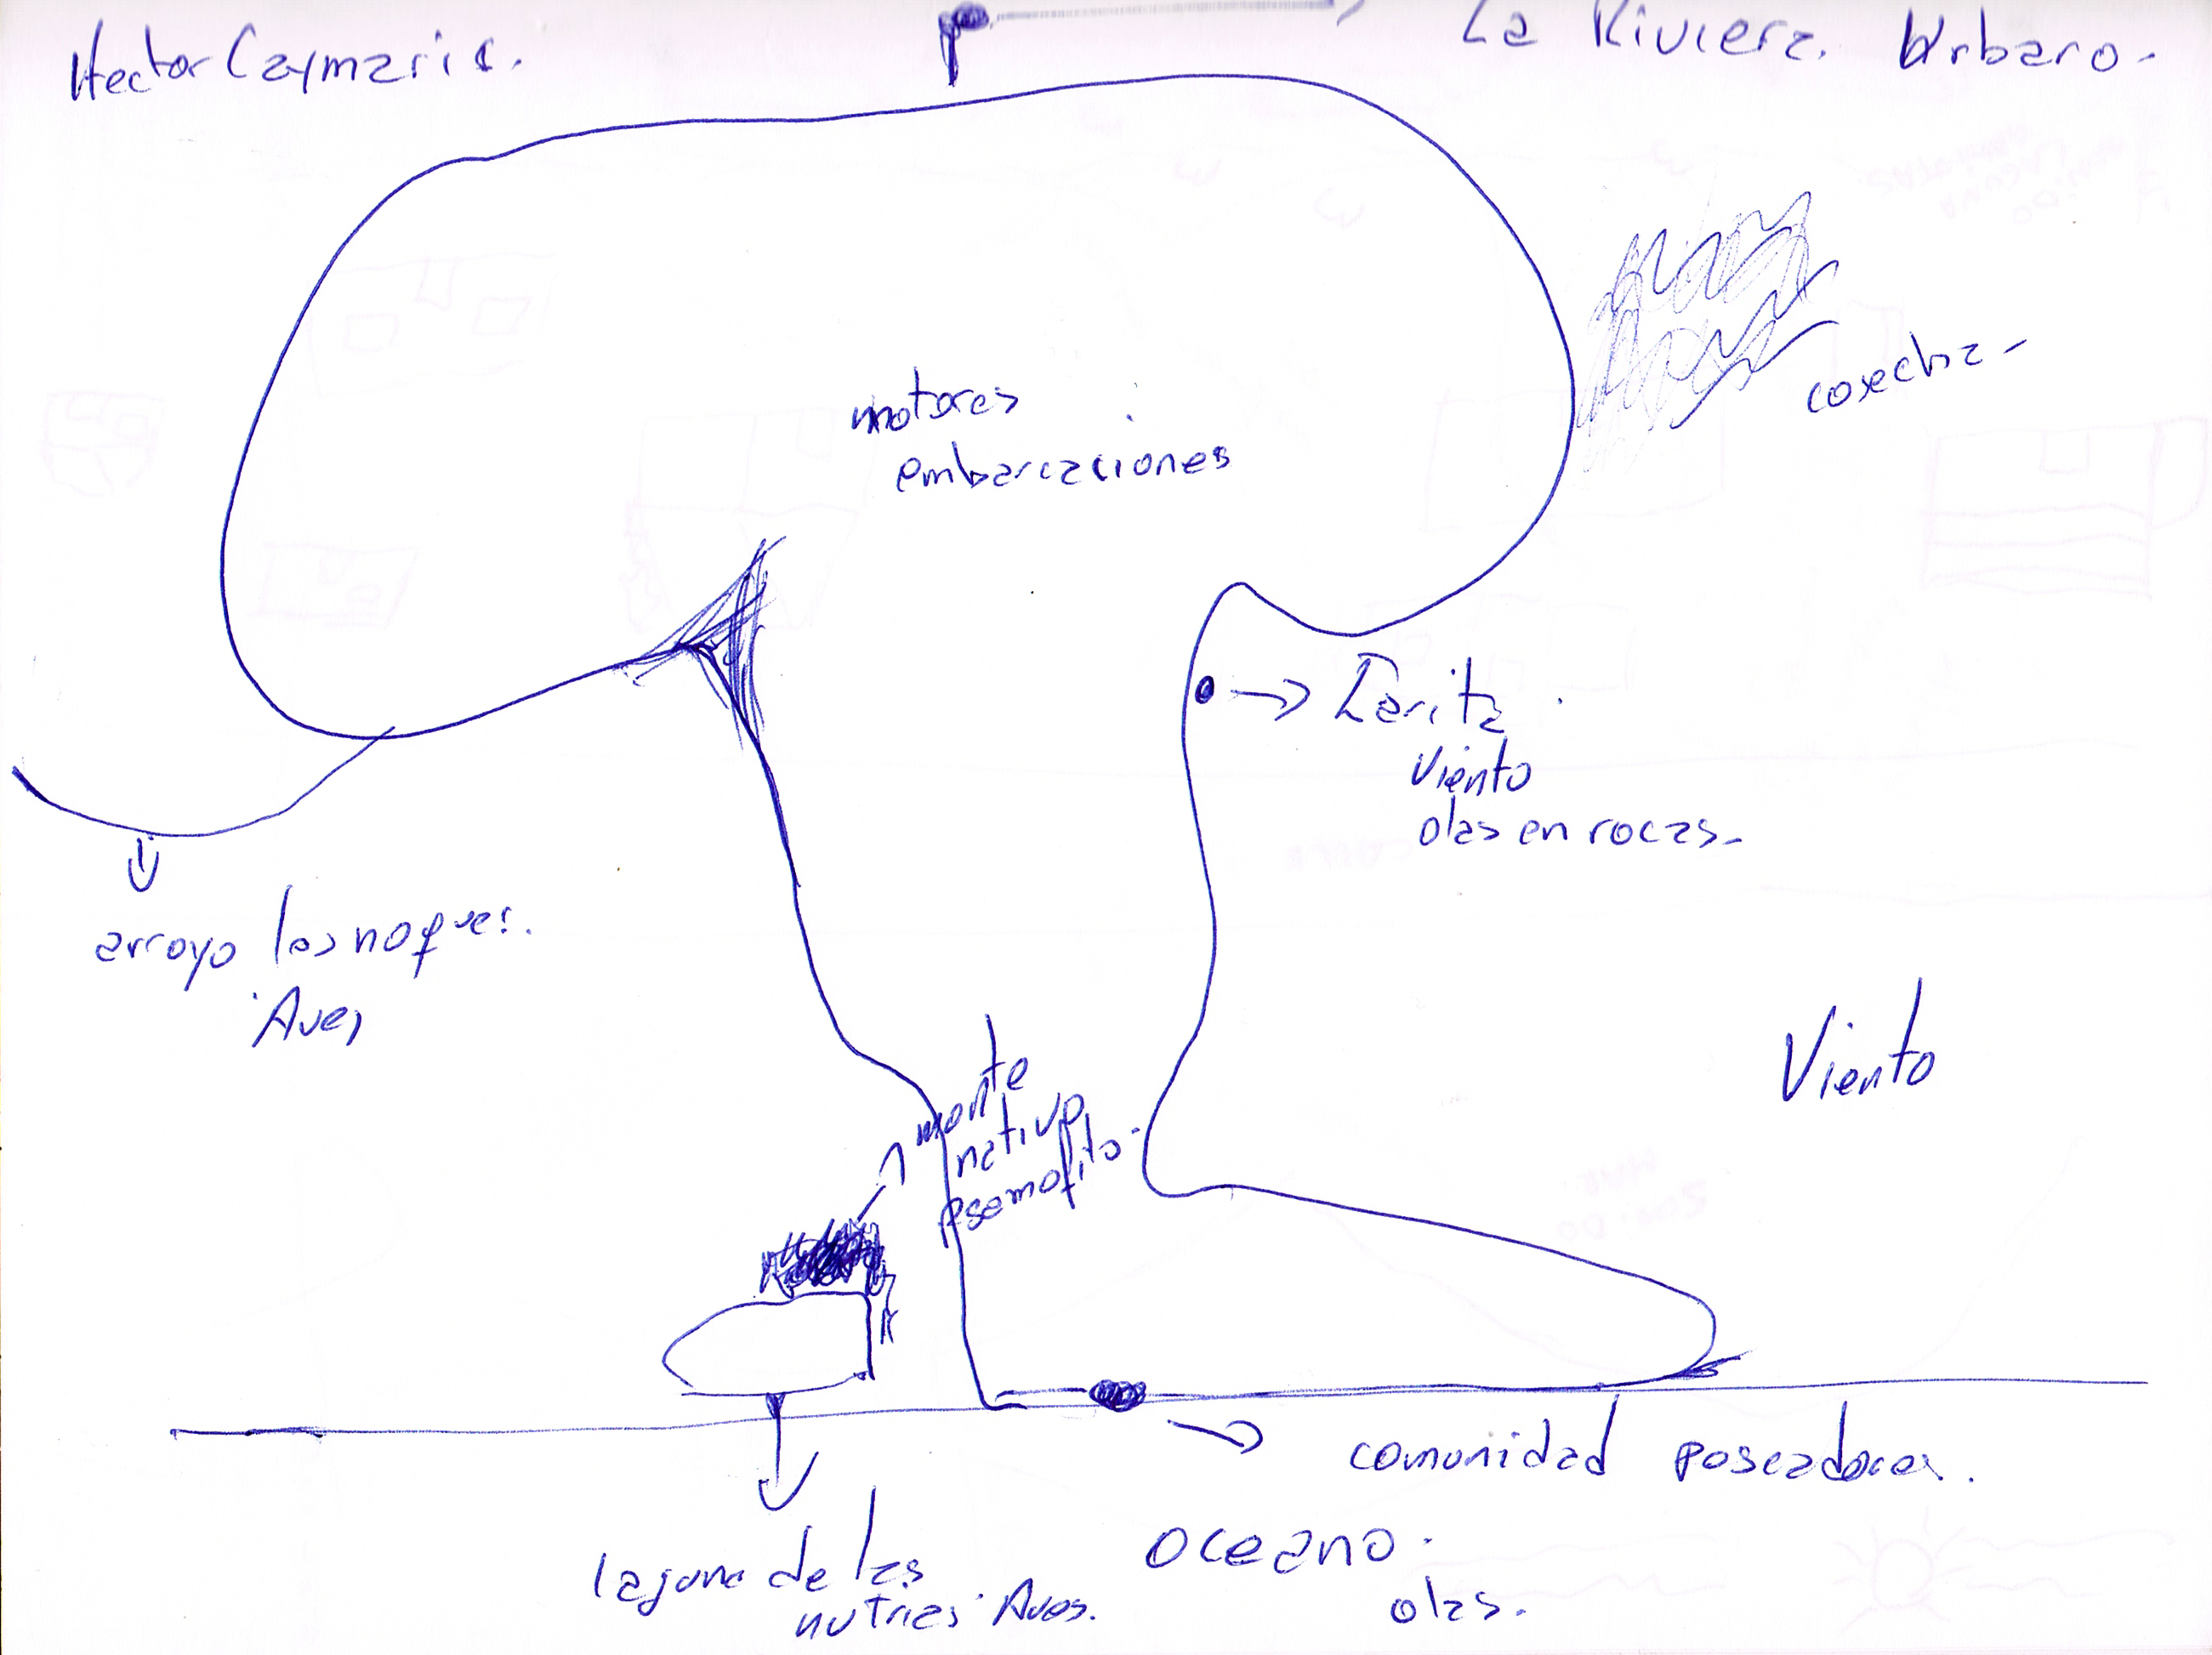 Hector Caymaris.
La Riviera. Urbano.
cosecha-
motores
embarcaciones
Zanita
Viento
olas en rocas-
arroyo los noques.
Aves
Viento
monte
nativo
psamofito-
comunidad poscadores.
Oceano.
olas.
laguna de las
nutrias Aves.